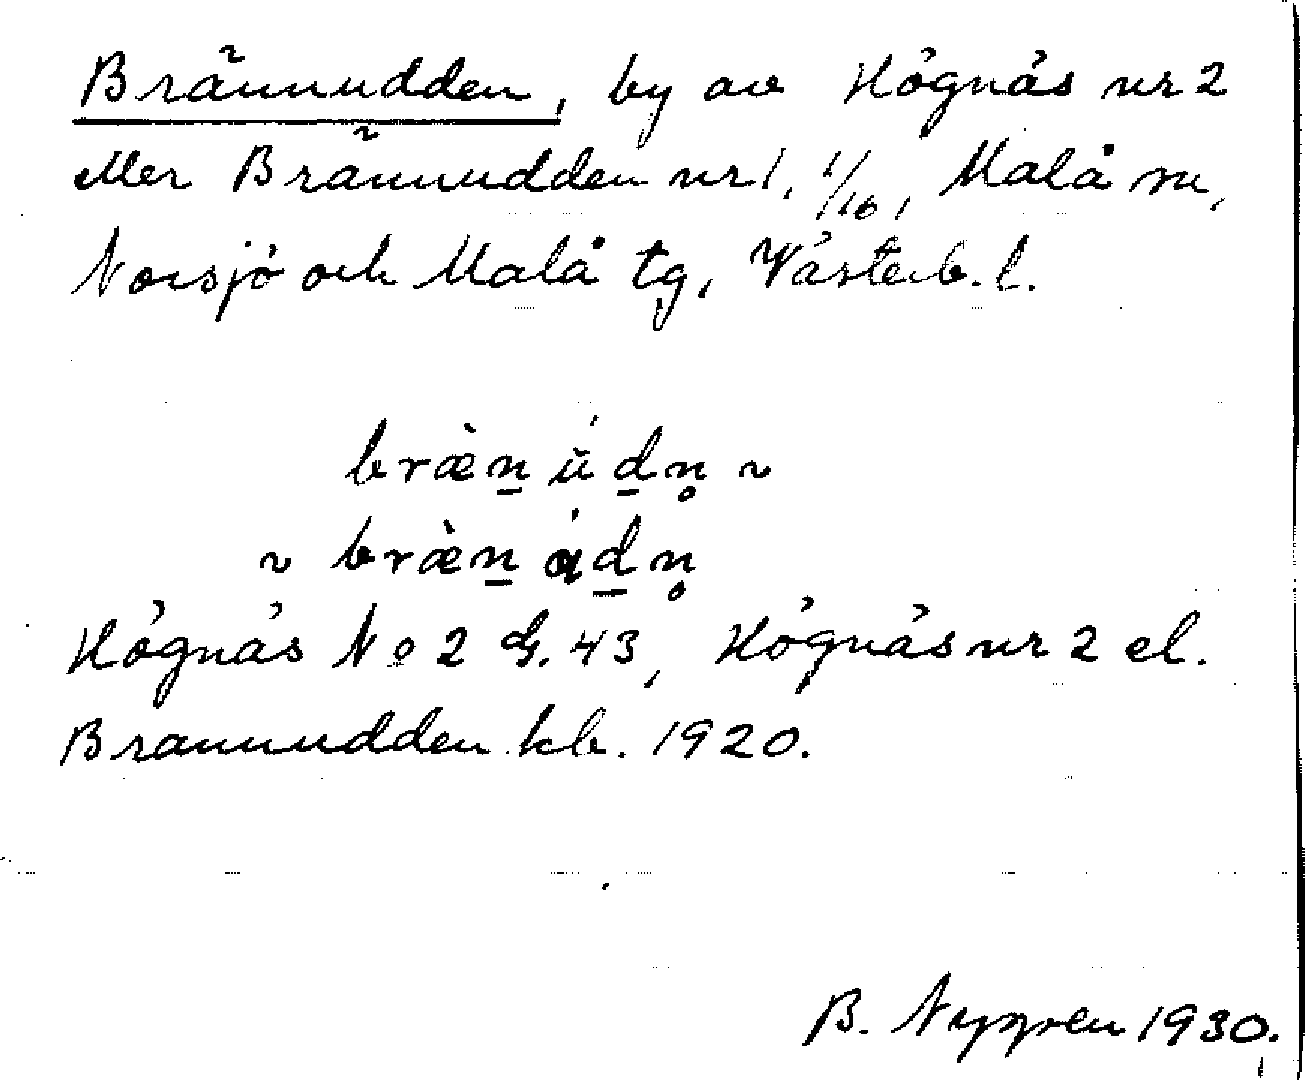 Brännudden, by av Högnäs nr 2
eller Brännudden nr 1, 1/16, Malå sn,
Norsjö och Malå tg, Västerb. l.
bræ̀n̠ ú̆d̠n̥ ~
~ bræ̀n̠ ád̠n̥
Högnäs No 2 G. 43, Högnäs nr 2 el.
Brannudden kb. 1920.
B. Nygren 1930.